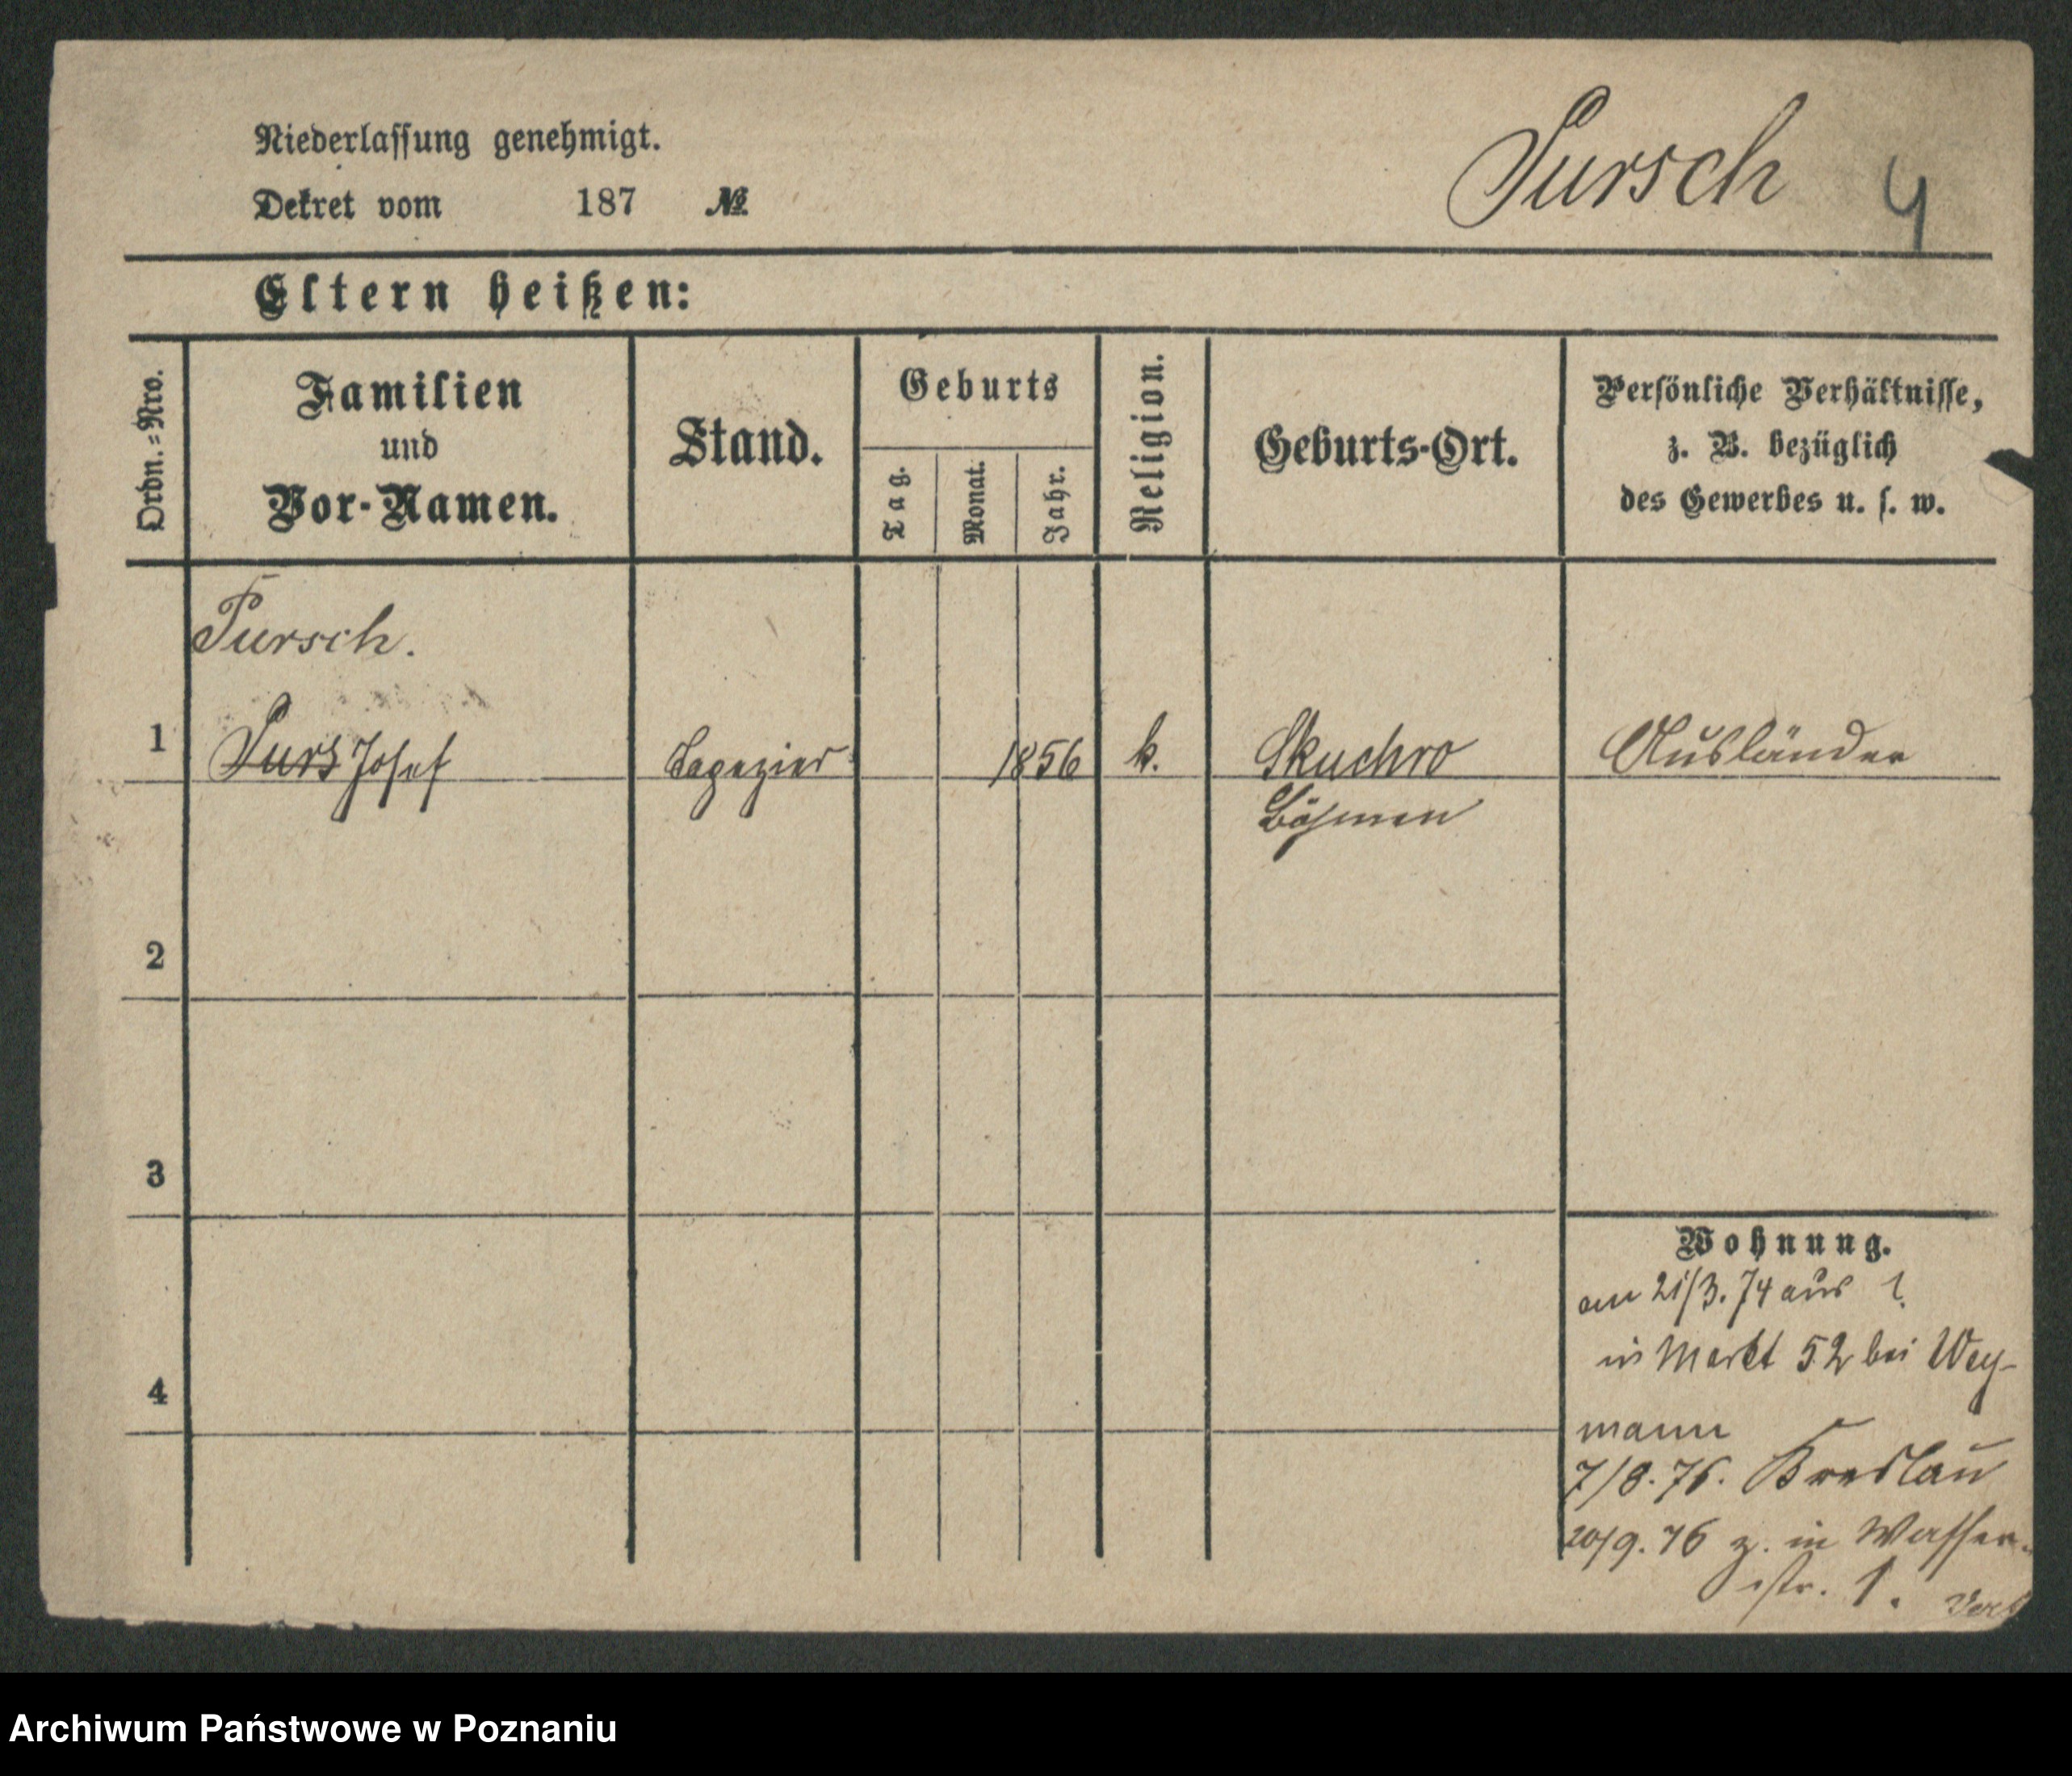 Niederlassung genehmigt.
Dekret vom 187 №
Pursch 4
Eltern heißen:
Ordn.=Nro.
Familien
und
Vor-Namen.
Stand.
Geburts
Tag.
Monat.
Jahr.
Religion.
Geburts-Ort.
Persönliche Verhältnisse,
z. B. bezüglich
des Gewerbes u. s. w.
Pursch.
1 Purs Josef Tapezier 1856 k. Skuchro Ausländer
Böhmen
2
3
4
Wohnung.
am 21/3. 74 aus ?
in Markt 52 bei Wey-
mann
7/8. 76. Breslau
20/9. 76 z. in Wasser-
str. 1.
Archiwum Państwowe w Poznaniu